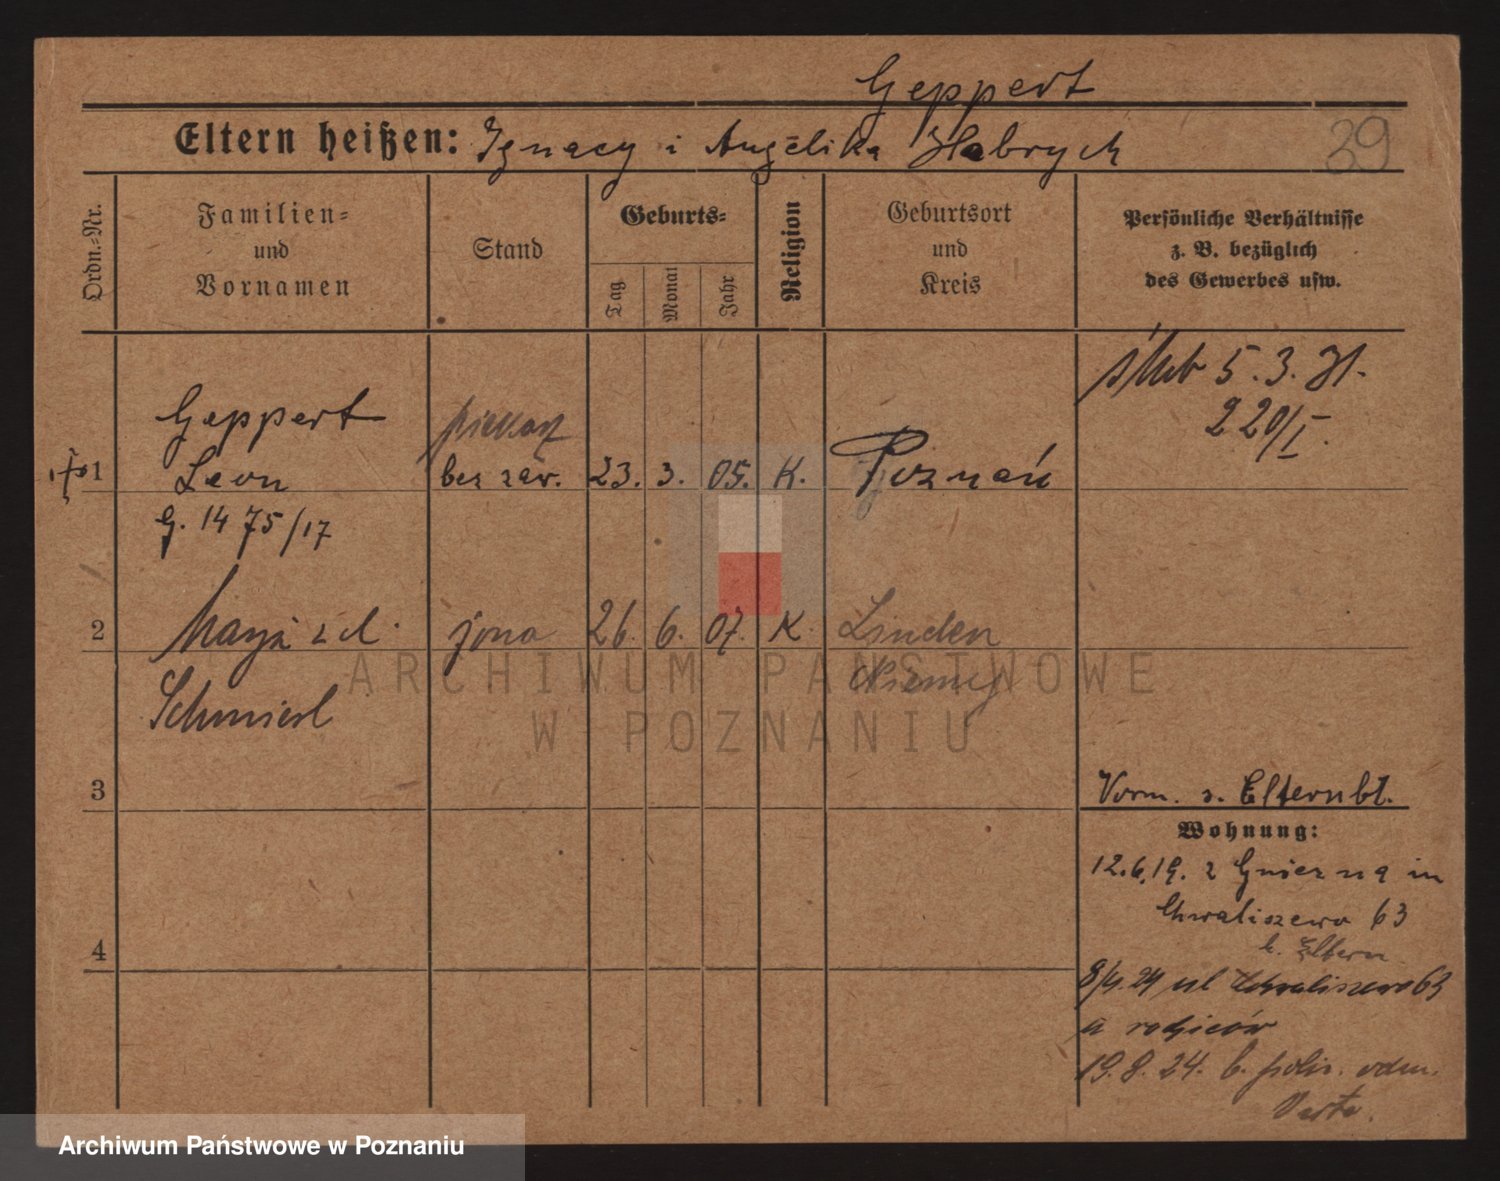 Geppert
Eltern heißen: Ignacy i Angelika Habrych
39
Ordn.-Nr.
Familien-
und
Vornamen
Stand
Geburts-
Tag
Monat
Jahr
Religion
Geburtsort
und
Kreis
Persönliche Verhältnisse
z. B. bezüglich
des Gewerbes usw.
5.3.31.
220/I.
Geppert
piekarz
1 Leon bez zaw. 23. 3. 05. K. Poznań
G. 1475/17
2 Marja z d. żona 26. 6. 07. K. Linden
Niemcy
Schmierl
3
Vorm. s. Elternbl.
Wohnung:
12.6.19. z Gniezna in
Chwaliszewo 63
b. Eltern
8/4.24 ul Chwaliszewo 63
u rodziców
19.8.24. b. odm.
Warta.
4
ARCHIWUM PAŃSTWOWE
W POZNANIU
Archiwum Państwowe w Poznaniu